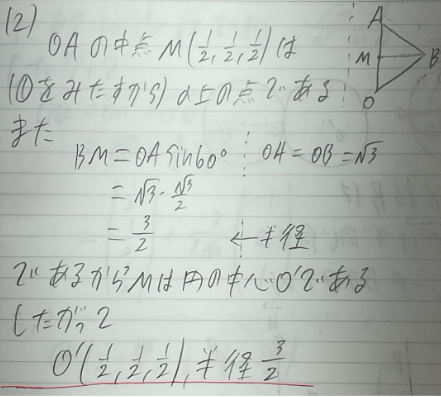 (2)
OAの中点M(1/2, 1/2, 1/2)は
(①をみたすから)α上の点である
また
BM=OAsin60° OA=OB=√3
=√3・√3/2
=3/2 ←半径
であるからMは円の中心O'である
したがって
O'(1/2, 1/2, 1/2), 半径 3/2
A
M
B
O